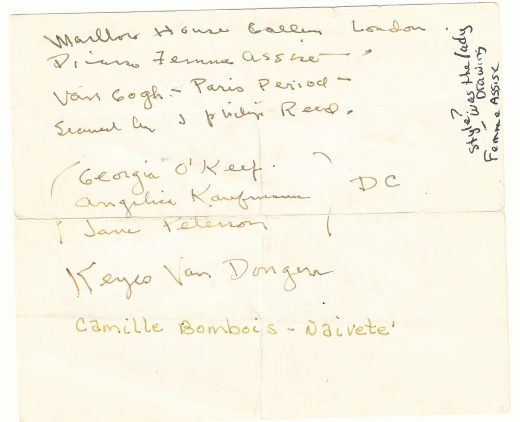 Marllow House Gallery London
Femme Assise
Van Gogh - Paris Period -
J Philip Reed.
Georgia O'Keef.
Angelica Kaufmann
DC
Jane Peterson
Van Dongen
Camille Bombois - Naiveté
style?
- was the lady
Drawing
Femme Assise